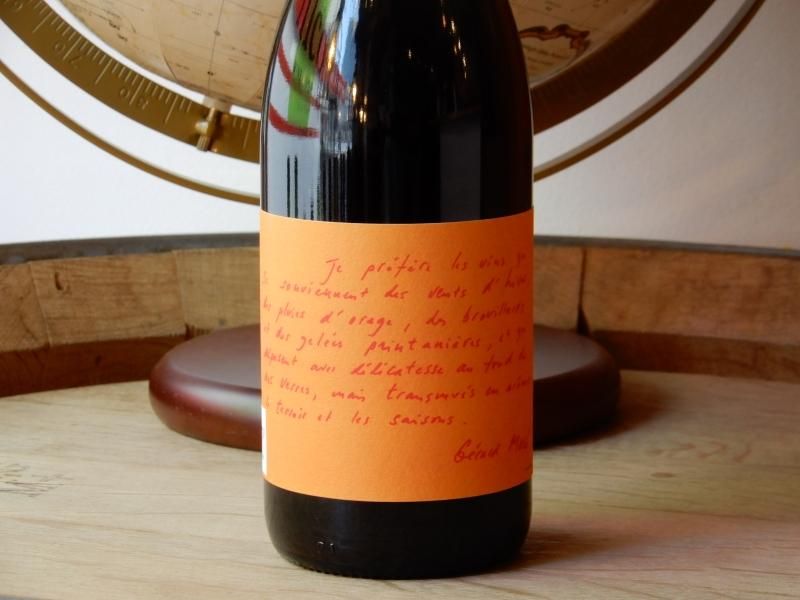 Je préfère les vins
souviennent des vents d'
pluies d'orage, des brouillards
et des gelées printanières,
déposent avec délicatesse au fond
verres, mais transmués en
terroir et les saisons.
Gérard